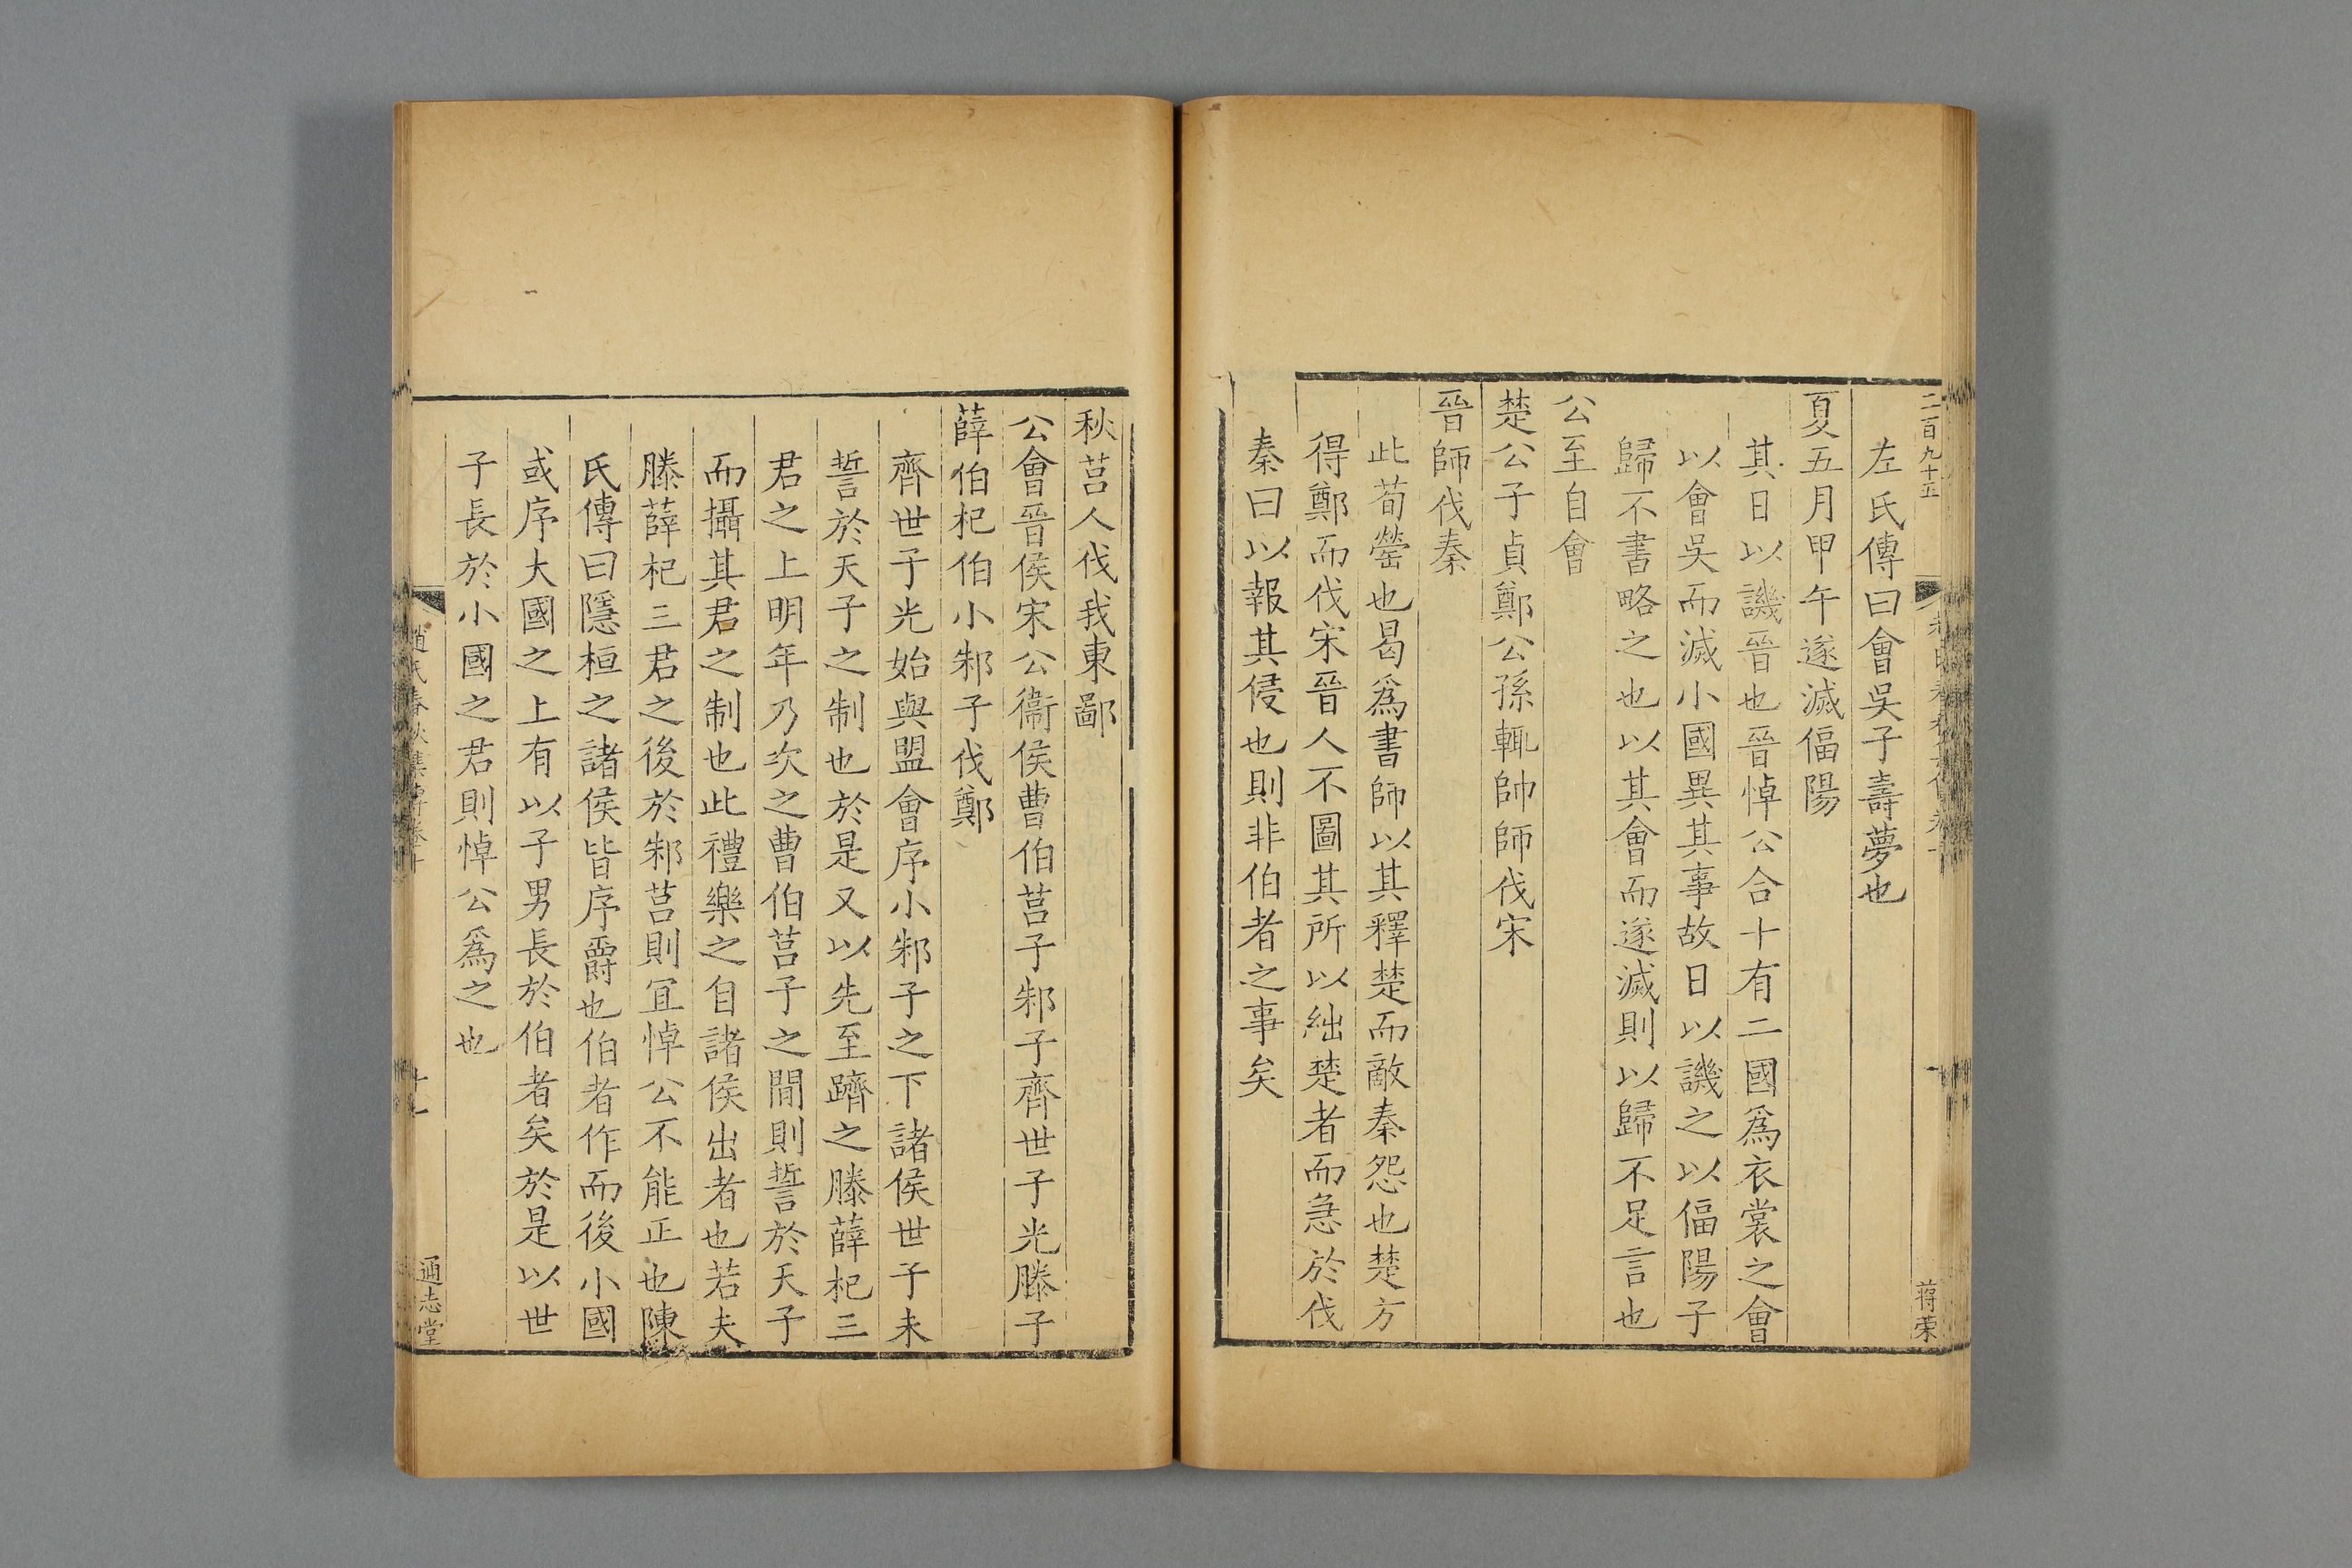 二百九十五
蒋荣
左氏傳曰會吳子壽夢也
夏五月甲午遂滅偪陽
其日以譏晉也晉悼公合十有二國爲衣裳之會
以會吳而滅小國異其事故日以譏之以偪陽子
歸不書略之也以其會而遂滅則以歸不足言也
公至自會
楚公子貞鄭公孫輒帥師伐宋
晉師伐秦
此荀罃也曷爲書師以其釋楚而敵秦怨也楚方
得鄭而伐宋晉人不圖其所以絀楚者而急於伐
秦曰以報其侵也則非伯者之事矣
秋莒人伐我東鄙
公會晉侯宋公衞侯曹伯莒子邾子齊世子光滕子
薛伯杞伯小邾子伐鄭
齊世子光始與盟會序小邾子之下諸侯世子未
誓於天子之制也於是又以先至躋之滕薛杞三
君之上明年乃次之曹伯莒子之間則誓於天子
而攝其君之制也此禮樂之自諸侯出者也若夫
滕薛杞三君之後於邾莒則宜悼公不能正也陳
氏傳曰隱桓之諸侯皆序爵也伯者作而後小國
或序大國之上有以子男長於伯者矣於是以世
子長於小國之君則悼公爲之也
趙氏春秋集傳卷十
十七
通志堂